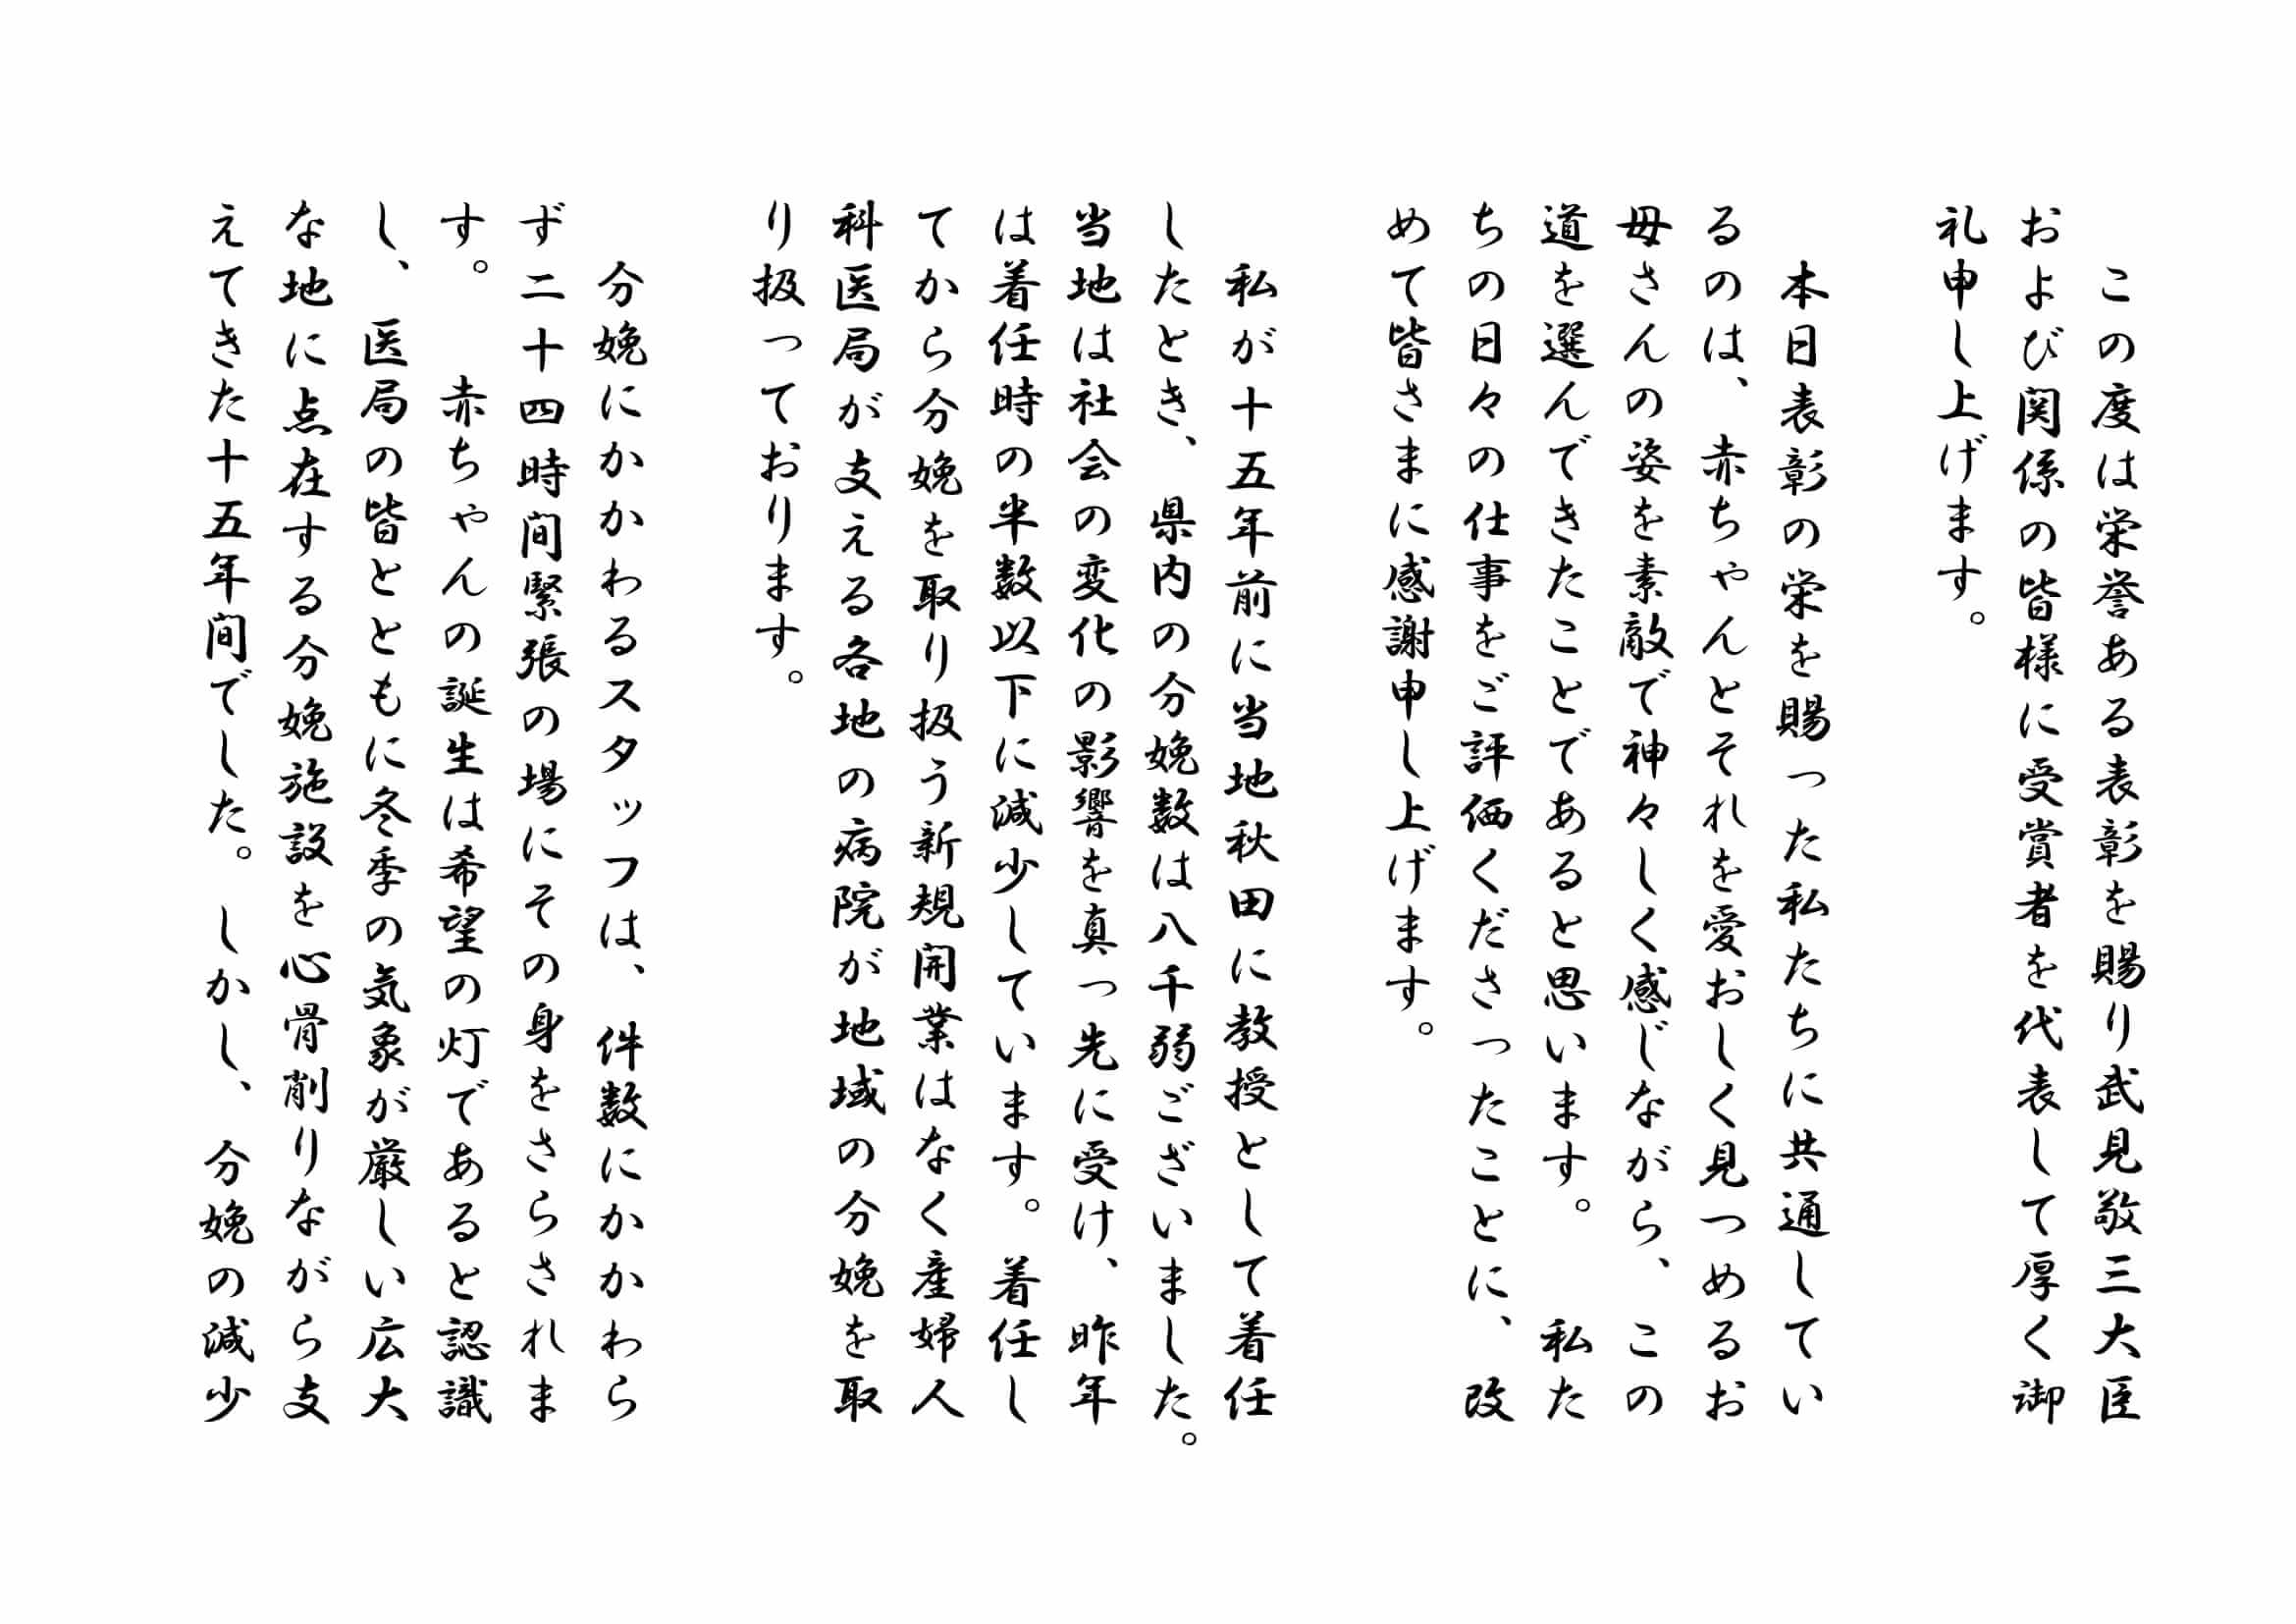 この度は栄誉ある表彰を賜り武見敬三大臣
および関係の皆様に受賞者を代表して厚く御
礼申し上げます。
本日表彰の栄を賜った私たちに共通してい
るのは、赤ちゃんとそれを愛おしく見つめるお
母さんの姿を素敵で神々しく感じながら、この
道を選んできたことであると思います。私た
ちの日々の仕事をご評価くださったことに、改
めて皆さまに感謝申し上げます。
私が十五年前に当地秋田に教授として着任
したとき、県内の分娩数は八千弱ございました。
当地は社会の変化の影響を真っ先に受け、昨年
は着任時の半数以下に減少しています。着任し
てから分娩を取り扱う新規開業はなく産婦人
科医局が支える各地の病院が地域の分娩を取
り扱っております。
分娩にかかわるスタッフは、件数にかかわら
ず二十四時間緊張の場にその身をさらされま
す。　赤ちゃんの誕生は希望の灯であると認識
し、医局の皆とともに冬季の気象が厳しい広大
な地に点在する分娩施設を心骨削りながら支
えてきた十五年間でした。しかし、分娩の減少